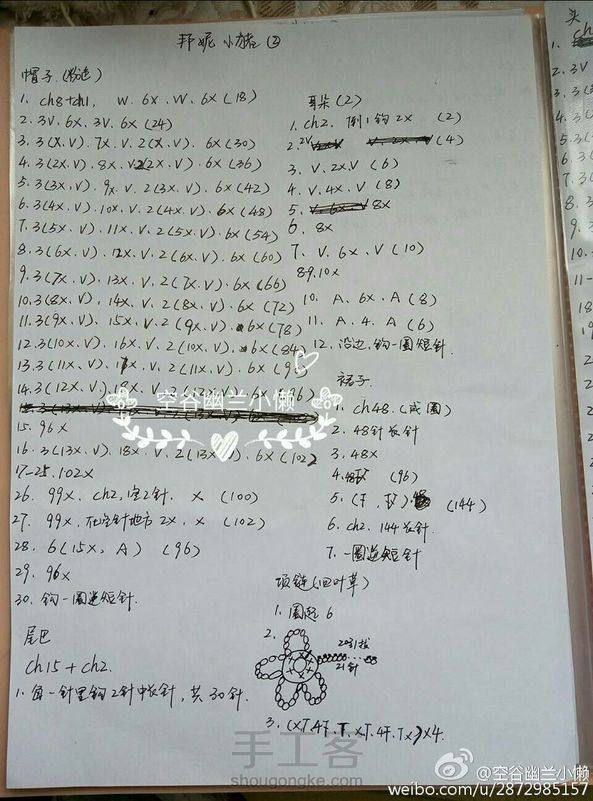 邦妮小猪②
帽子(粉色)
1. ch8+ch1, W. 6X. W. 6X (18)
2. 3V. 6X. 3V. 6X (24)
3. 3(X.V). 7X. V. 2(X.V). 6X (30)
4. 3(2X.V). 8X. V. 2(2X.V). 6X (36)
5. 3(3X.V). 9X. V. 2(3X.V). 6X (42)
6. 3(4X.V). 10X. V. 2(4X.V). 6X (48)
7. 3(5X.V). 11X. V. 2(5X.V). 6X (54)
8. 3(6X.V). 12X. V. 2(6X.V). 6X (60)
9. 3(7X.V). 13X. V. 2(7X.V). 6X (66)
10. 3(8X.V). 14X. V. 2(8X.V). 6X (72)
11. 3(9X.V). 15X. V. 2(9X.V). 6X (78)
12. 3(10X.V). 16X. V. 2(10X.V). 6X (84)
13. 3(11X.V). V. 2(11X.V). 6X
14. 3(12X.V). 18X. V. 6X 96)
15. 96X
16. 3(13X.V). 18X. V. 2(13X. ). 6X (102)
17-25. 102X
26. 99X. ch2, 空2针. X (100)
27. 99X. 在空针地方2X. X (102)
28. 6(15X, A) (96)
29. 96X
30. 钩一圈逆短针.
尾巴
ch15+ch2.
1. 每一针里钩2针中长针, 共30针.
耳朵(2)
1. ch2. 倒1钩2X (2)
2. 2V (4)
3. V. 2X. V (6)
4. V. 4X. V (8)
5. 8X
6. 8X
7. V. 6X. V (10)
8.9. 10X
10. A. 6X. A (8)
11. A. 4. A (6)
12. 沿边, 钩一圈短针.
裙子
1. ch48. (成圈)
2. 48针长针
3. 48X
4. (96)
5. (144)
6. ch2. 144长针
7. 一圈逆短针
项链(四叶草)
1. 圈起6
2.
20引拔
21针
3. (XT.4F.T.XT.4F.TX)X4.
头
1. ch
2. 3V
3. 3(
4. 3
5. 3(
6. 3
7. 3
8. 3
9.
10.
11-
空谷幽兰小懒
手工客
shougongke.com
@空谷幽兰小懒
weibo.com/u/2872985157